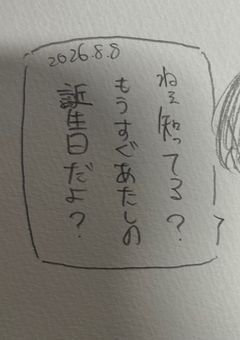 2026.8.8
ねぇ知ってる?
もうすぐあたしの
誕生日だよ?